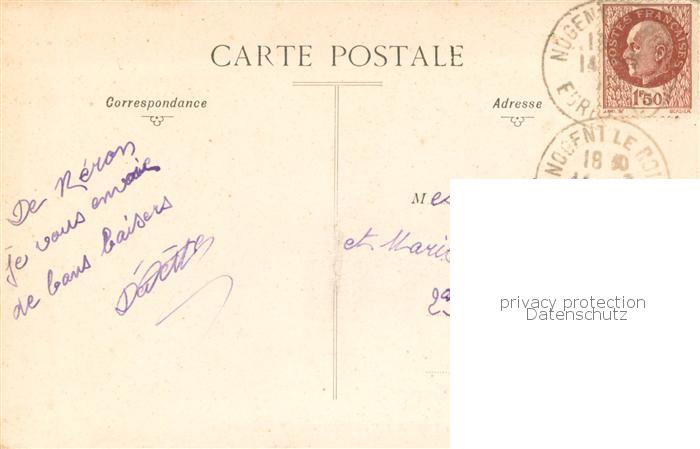 CARTE POSTALE
Correspondance
Adresse
NOGENT
14
EURE
POSTES FRANÇAISES
1F50
NOGENT LE ROI
18 30
De Néron
je vous envoie
de bons baisers
Mes
et Marie
privacy protection
Datenschutz